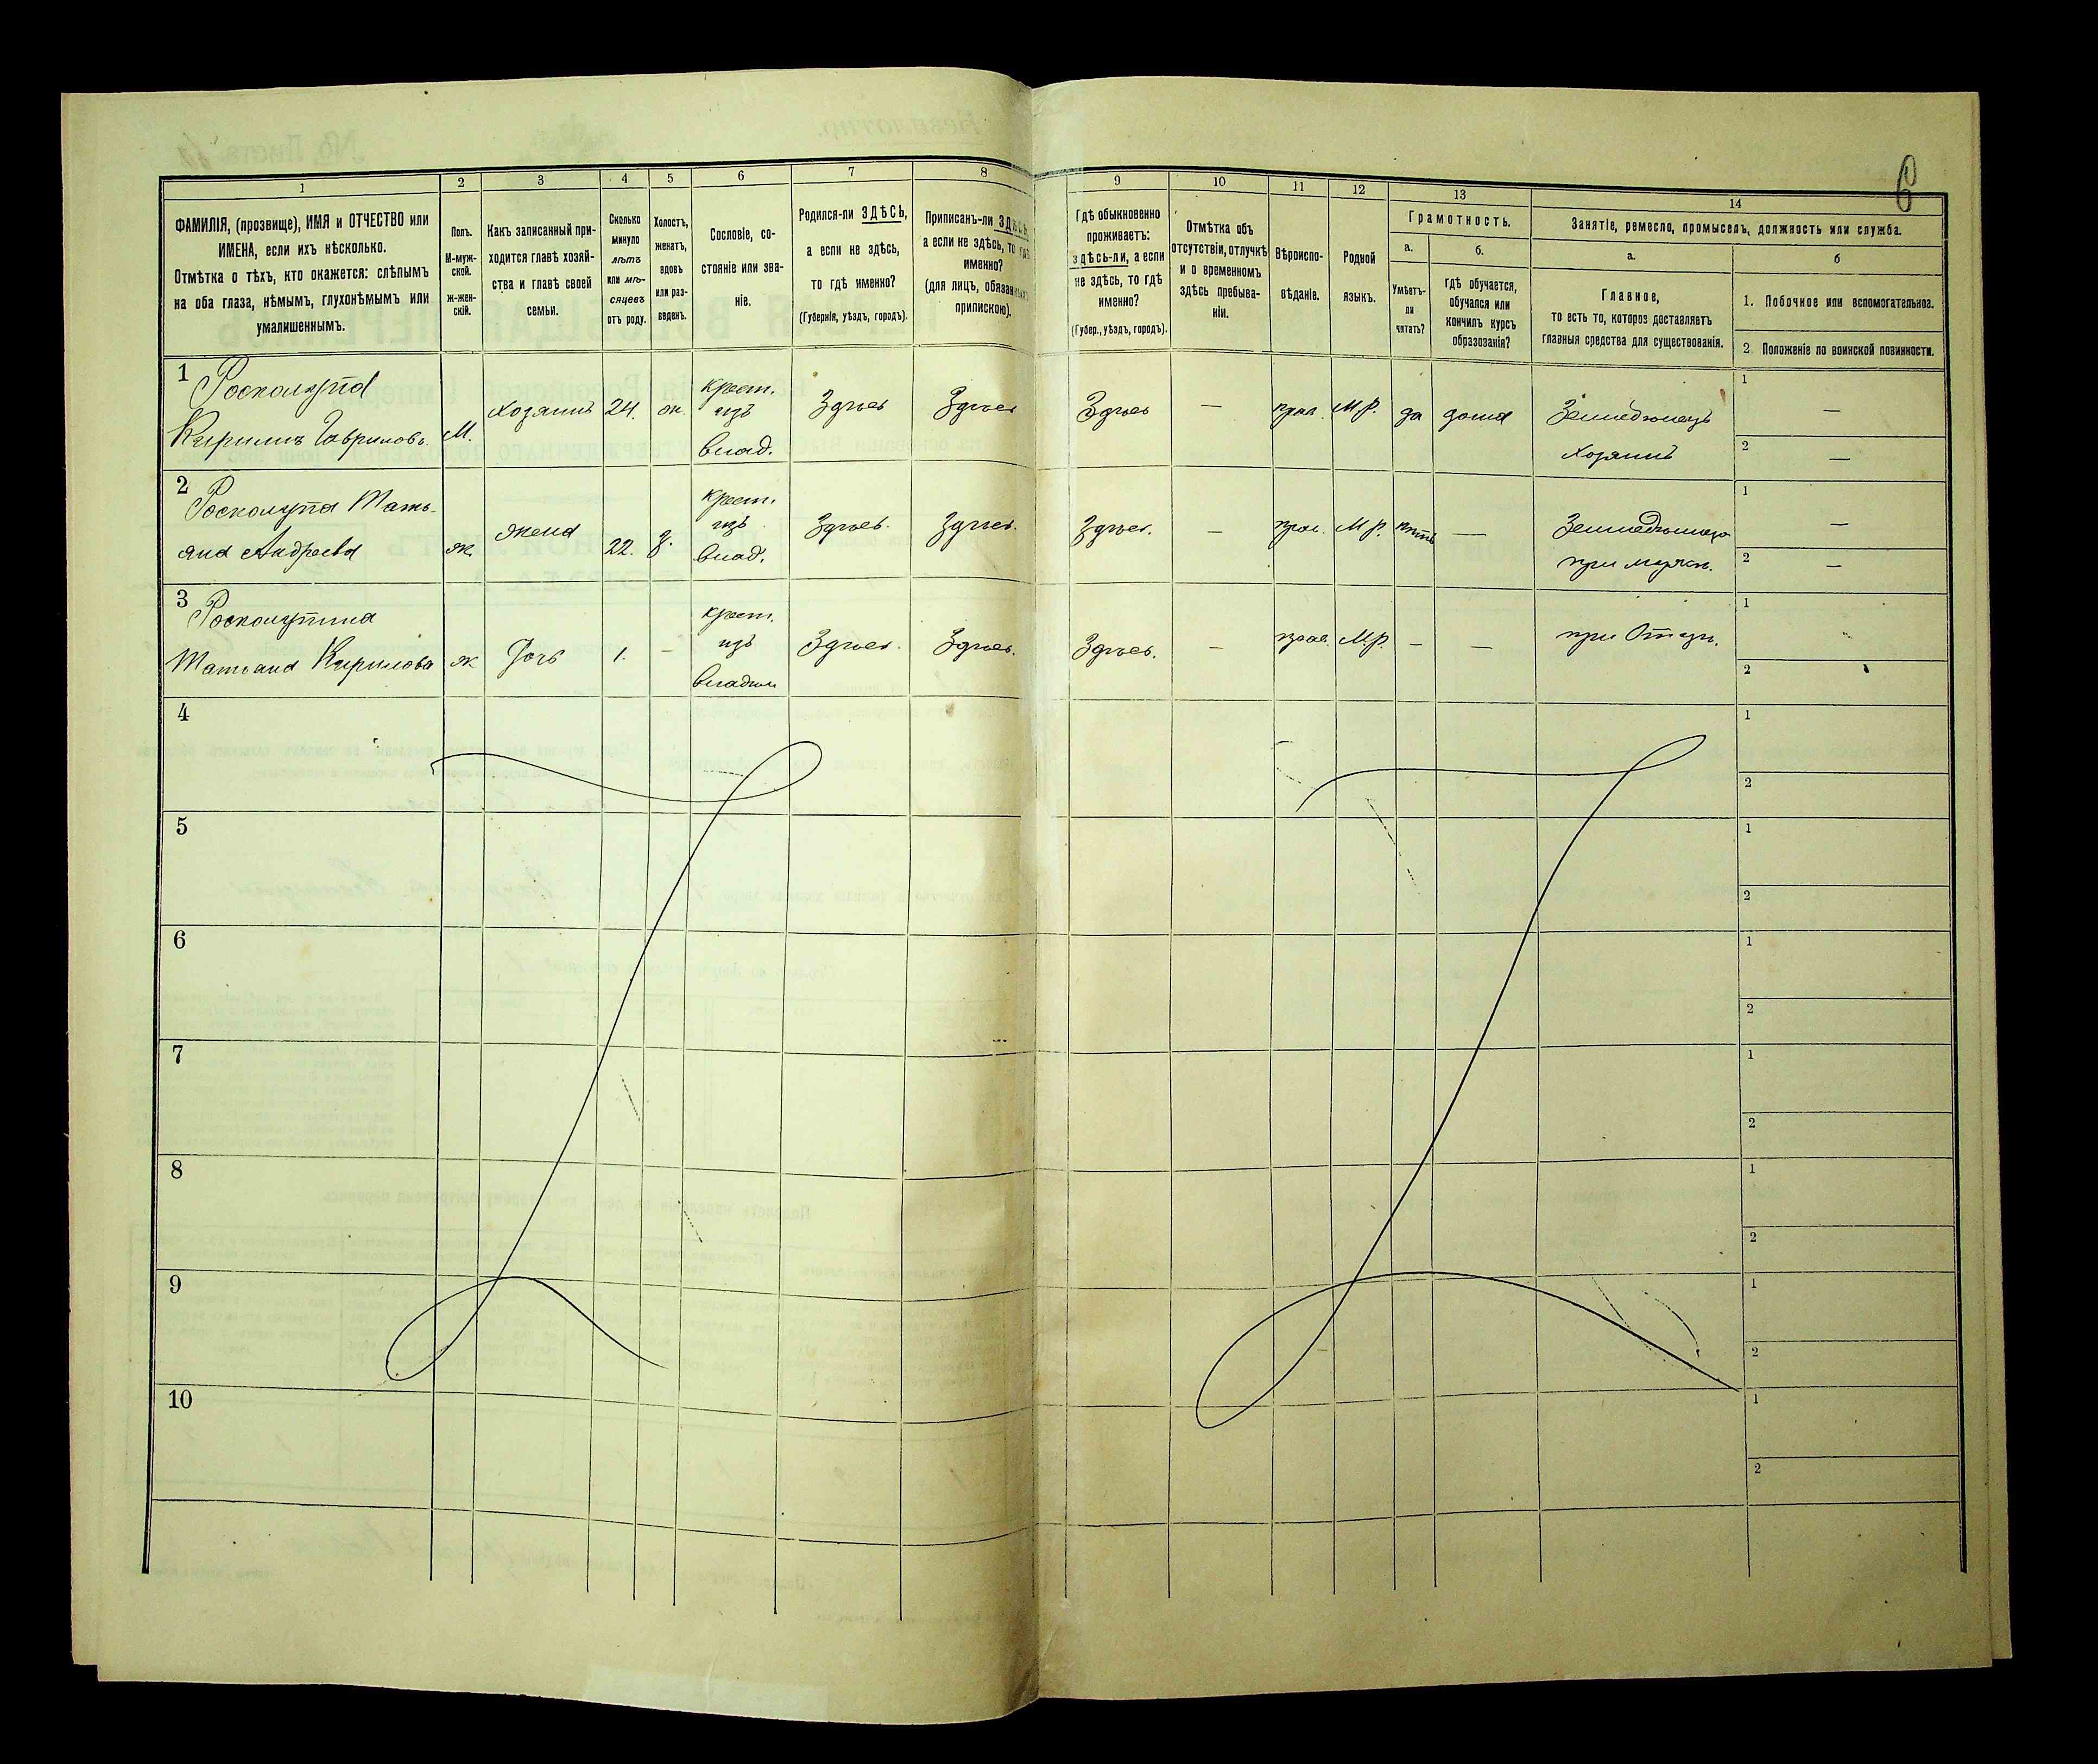 6
1
2
3
4
5
6
7
8
9
10
11
12
13
14
ФАМИЛІЯ, (прозвище), ИМЯ и ОТЧЕСТВО или
ИМЕНА, если ихъ нѣсколько.
Отмѣтка о тѣхъ, кто окажется: слѣпымъ
на оба глаза, нѣмымъ, глухонѣмымъ или
умалишеннымъ.
Полъ.
М-муж-
ской.
ж-жен-
скій.
Какъ записанный при-
ходится главѣ хозяй-
ства и главѣ своей
семьи.
Сколько
минуло
лѣтъ
или мѣ-
сяцевъ
отъ роду.
Холостъ,
женатъ,
вдовъ
или раз-
веденъ.
Сословіе, со-
стояніе или зва-
ніе.
Родился-ли ЗДѢСЬ,
а если не здѣсь,
то гдѣ именно?
(Губернія, уѣздъ, городъ).
Приписанъ-ли ЗДѢСЬ,
а если не здѣсь, то гдѣ
именно?
(для лицъ, обязанныхъ
припискою).
Гдѣ обыкновенно
проживаетъ:
здѣсь-ли, а если
не здѣсь, то гдѣ
именно?
(Губер., уѣздъ, городъ).
Отмѣтка объ
отсутствіи, отлучкѣ
и о временномъ
здѣсь пребыва-
ніи.
Вѣроиспо-
вѣданіе.
Родной
языкъ.
Грамотность.
а.
Умѣетъ-
ли
читать?
б.
гдѣ обучается,
обучался или
кончилъ курсъ
образованія?
Занятіе, ремесло, промыселъ, должность или служба.
а.
Главное,
то есть то, которое доставляетъ
главныя средства для существованія.
б
1. Побочное или вспомогательное.
2. Положеніе по воинской повинности.
1 Росколупа
Кирилъ Гавриловъ. М. Хозяинъ 24. жн. крест. изъ влад. Здѣсь Здѣсь Здѣсь — прав. М.Р. да дома Земледѣлецъ хозяинъ
1 —
2 —
2 Росколупа Мать-
яна Андреева ж. жена 22. з. крест. изъ влад. Здѣсь. Здѣсь. Здѣсь. — прав. М.Р. нѣтъ —
при мужѣ.
1 —
2 —
3 Росколупина
Матьяна Кирилова ж Дочь 1. — крест. изъ владѣл. Здѣсь. Здѣсь. Здѣсь. — прав. М.Р. — — при Отцѣ.
1
2
4
1
2
5
1
2
6
1
2
7
1
2
8
1
2
9
1
2
10
1
2